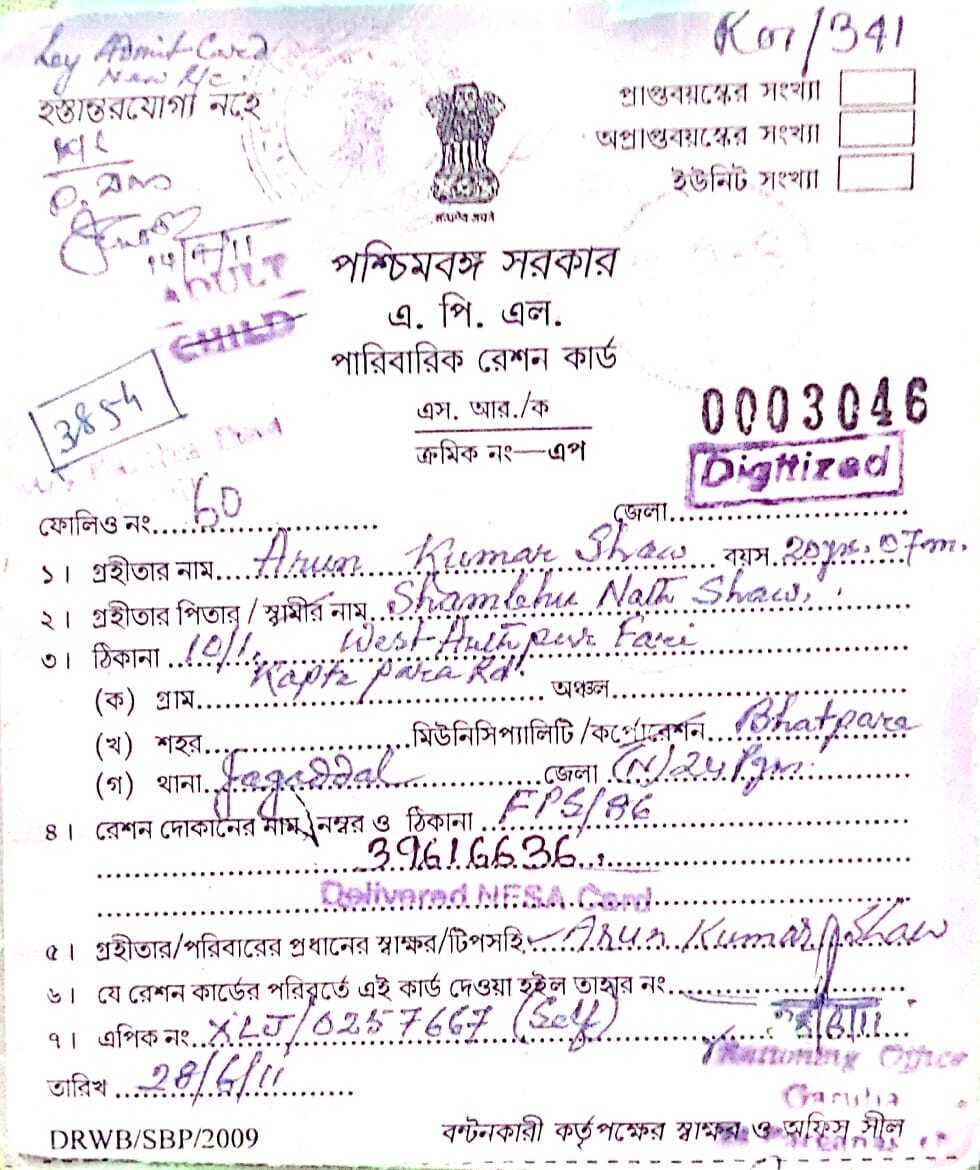 Kon/341
By Admit Card
New R/C
হস্তান্তরযোগ্য নহে
প্রাপ্তবয়স্কের সংখ্যা
অপ্রাপ্তবয়স্কের সংখ্যা
ইউনিট সংখ্যা
ADULT
CHILD
পশ্চিমবঙ্গ সরকার
এ. পি. এল.
পারিবারিক রেশন কার্ড
3854
এস. আর./ক
ক্রমিক নং—এপ
0003046
Digitized
ফোলিও নং....60.... জেলা....
১। গ্রহীতার নাম....Arun Kumar Shaw.... বয়স.20yrs. 07m.
২। গ্রহীতার পিতার / স্বামীর নাম. Shambhu Nath Shaw.
৩। ঠিকানা ..10/1, West
para Rd.
(ক) গ্রাম.... অঞ্চল....
(খ) শহর....মিউনিসিপ্যালিটি /কর্পোরেশন. Bhatpara
(গ) থানা. Jagaddal ....জেলা (N) 24 Pgs.
৪। রেশন দোকানের নাম, নম্বর ও ঠিকানা ...FPS/86
39616636
Delivered NFSA Card
৫। গ্রহীতার/পরিবারের প্রধানের স্বাক্ষর/টিপসহি. Arun Kumar Shaw
৬। যে রেশন কার্ডের পরিবর্তে এই কার্ড দেওয়া হইল তাহার নং....
৭। এপিক নং. XLJ/0257667 (Self)
Rationing Officer
তারিখ ....28/6/11....
Garulia
DRWB/SBP/2009
বণ্টনকারী কর্তৃপক্ষের স্বাক্ষর ও অফিস সীল